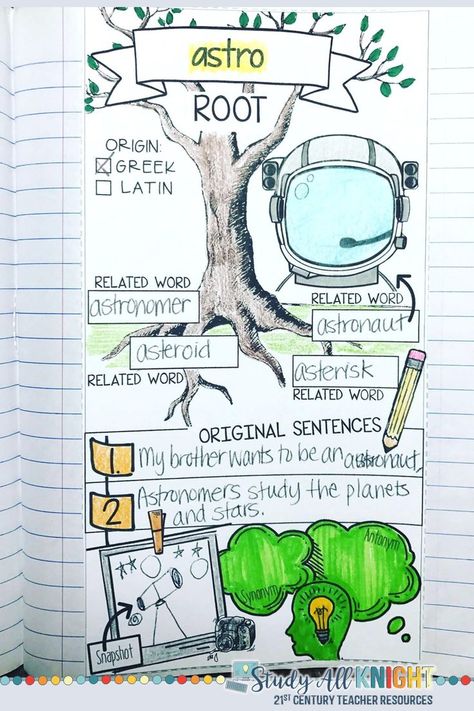 astro
ROOT
ORIGIN:
GREEK
LATIN
RELATED WORD
astronomer
RELATED WORD
astronaut
asteroid
RELATED WORD
asterisk
RELATED WORD
ORIGINAL SENTENCES
1. My brother wants to be an astronaut.
2 Astronomers study the planets
and stars.
Synonym
Antonym
Snapshot
Study All KNIGHT
21ST CENTURY TEACHER RESOURCES